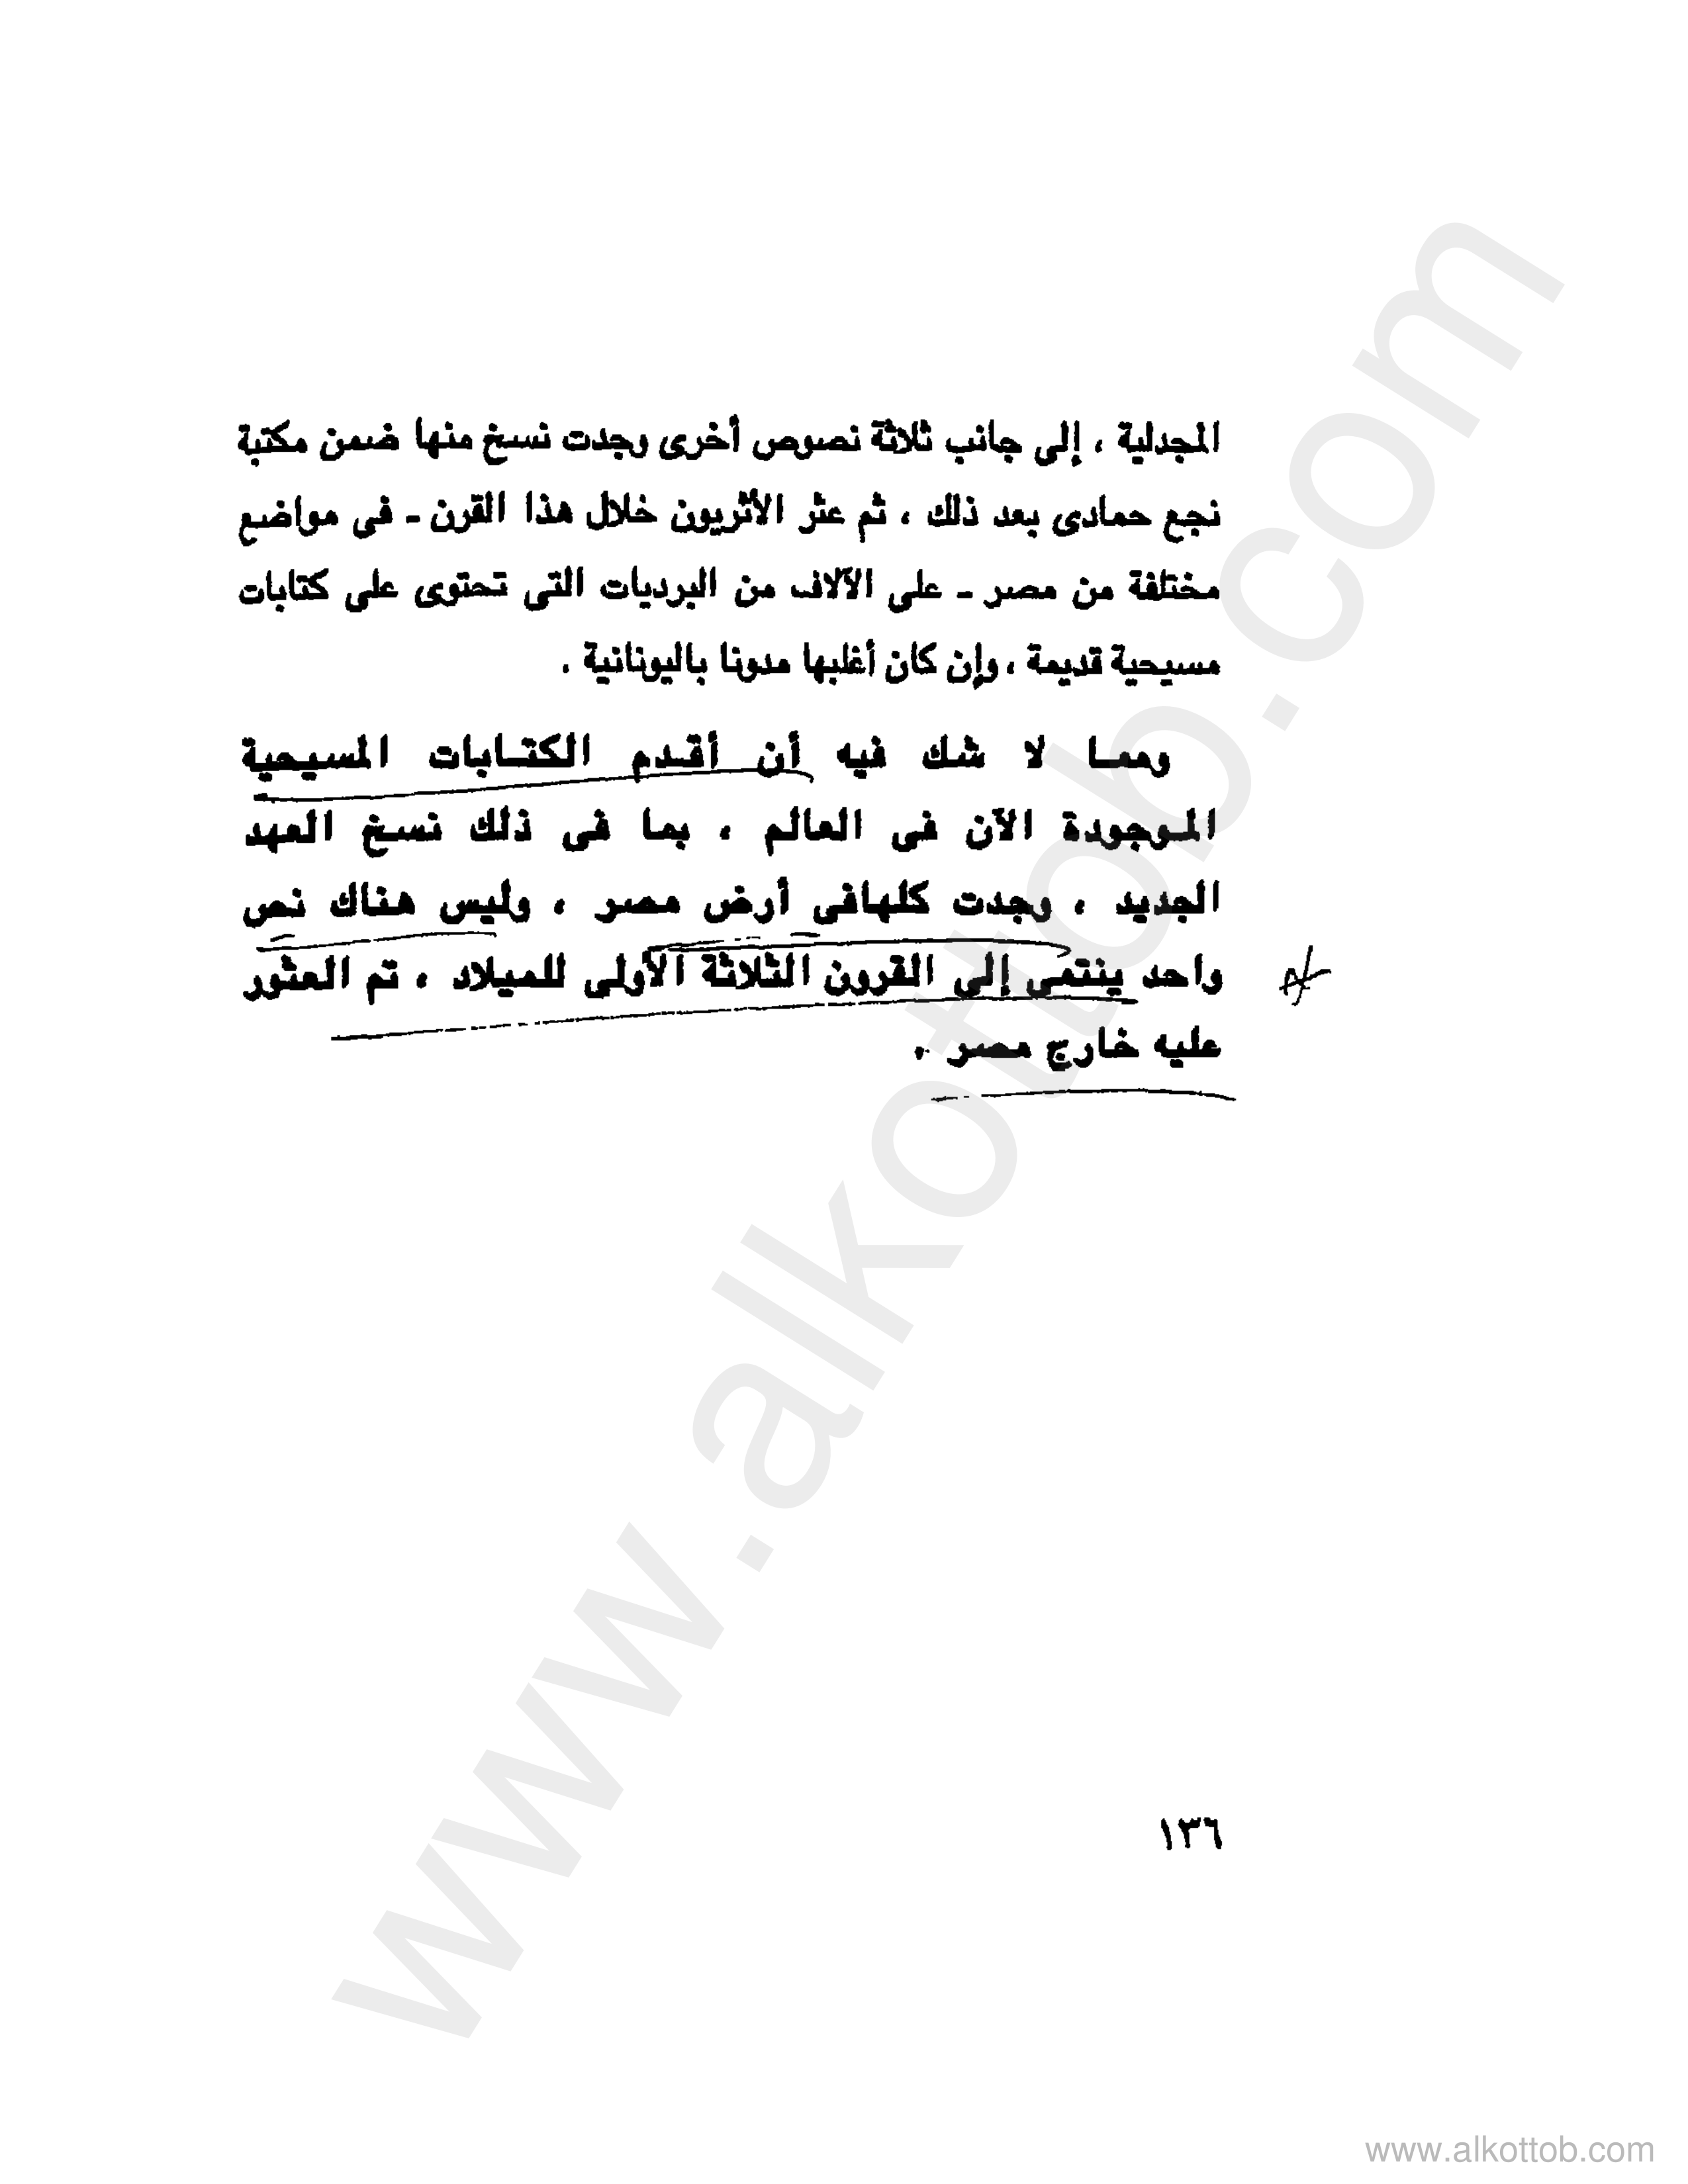 المجدلية ، إلى جانب ثلاثة نصوص أخرى وجدت نسخ منها ضمن مكتبة
نجع حمادى بعد ذلك ، ثم عثر الأثريون خلال هذا القرن - فى مواضع
مختلفة من مصر - على الآلاف من البرديات التى تحتوى على كتابات
مسيحية قديمة ، وإن كان أغلبها مدونا باليونانية .
ومما لا شك فيه أن أقدم الكتابات المسيحية
الموجودة الآن فى العالم ، بما فى ذلك نسخ العهد
الجديد ، وجدت كلهافى أرض مصر ، وليس هناك نص
واحد ينتمى إلى القرون الثلاثة الأولى للميلاد ، تم العثور
عليه خارج مصر .
١٣٦
www.alkottob.com
www.alkottob.com